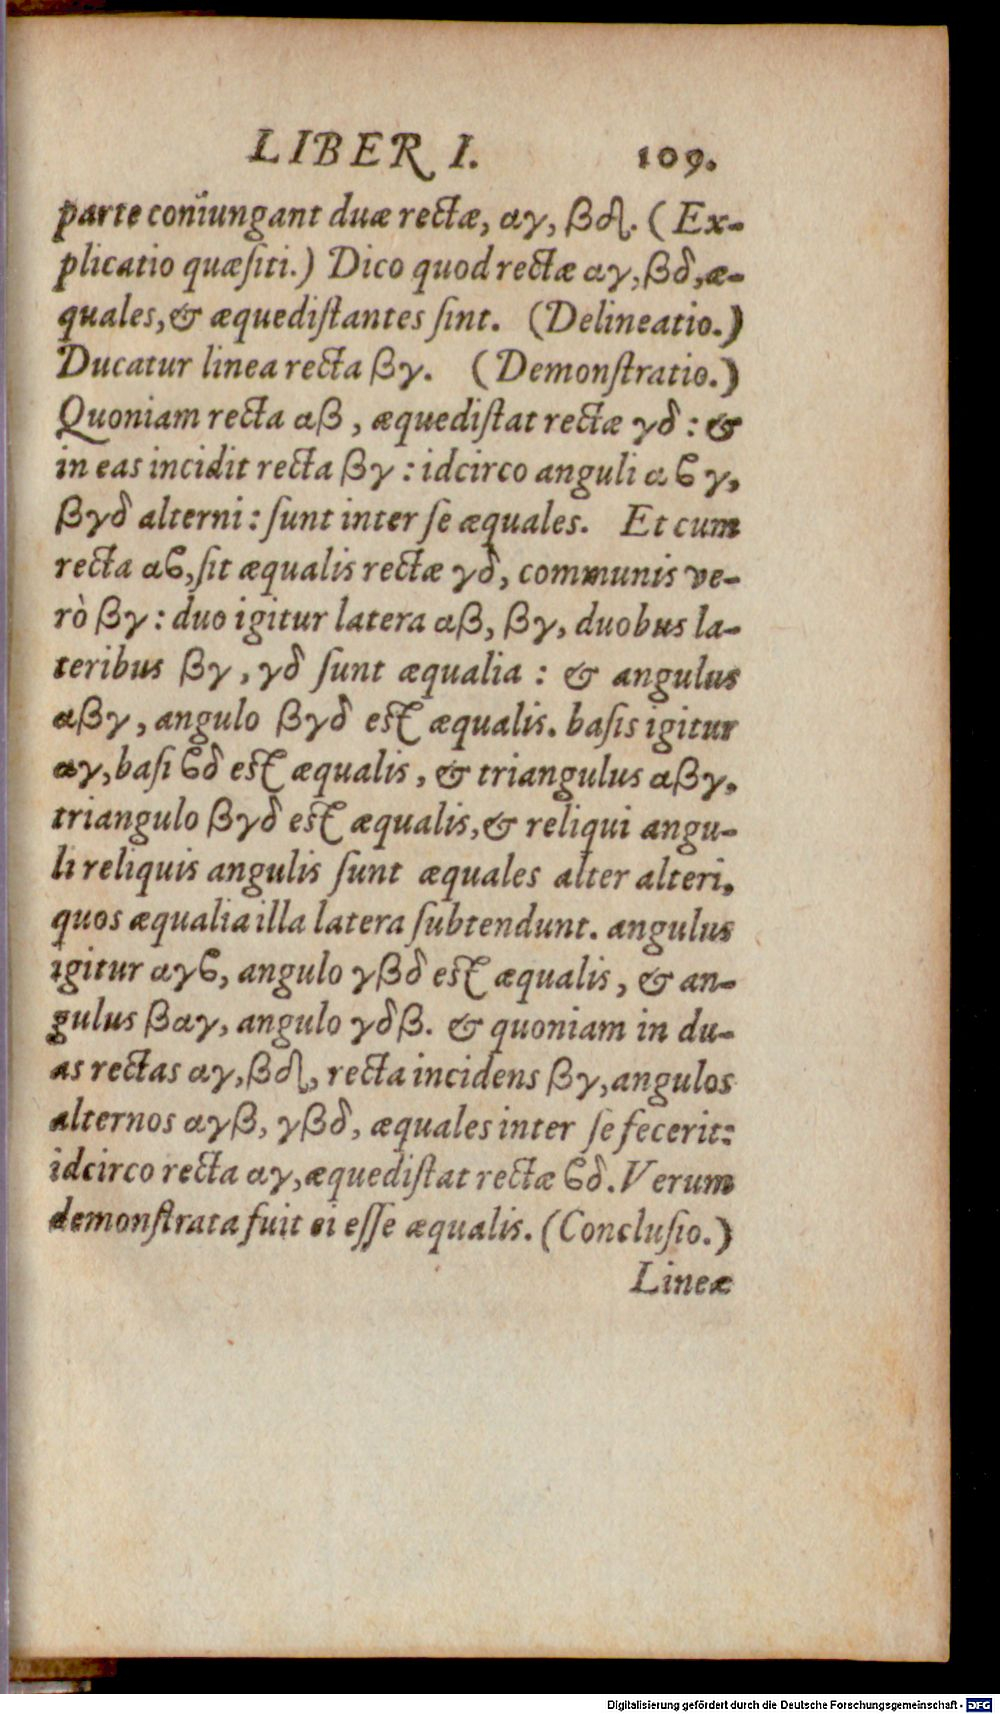 LIBER I. 109.
parte coniungant duæ rectæ, αγ, βδ. (Ex-
plicatio quæſiti.) Dico quod rectæ αγ, βδ, æ-
quales, & æquediſtantes ſint. (Delineatio.)
Ducatur linea recta βγ. (Demonſtratio.)
Quoniam recta αβ, æquediſtat rectæ γδ: &
in eas incidit recta βγ: idcirco anguli αϐγ,
βγδ alterni: ſunt inter ſe æquales. Et cum
recta αϐ, ſit æqualis rectæ γδ, communis ve-
rò βγ: duo igitur latera αβ, βγ, duobus la-
teribus βγ, γδ ſunt æqualia: & angulus
αβγ, angulo βγδ eſt æqualis. baſis igitur
αγ, baſi ϐδ eſt æqualis, & triangulus αβγ,
triangulo βγδ eſt æqualis, & reliqui angu-
li reliquis angulis ſunt æquales alter alteri,
quos æqualia illa latera ſubtendunt. angulus
igitur αγϐ, angulo γβδ eſt æqualis, & an-
gulus βαγ, angulo γδβ. & quoniam in du-
as rectas αγ, βδ, recta incidens βγ, angulos
alternos αγβ, γβδ, æquales inter ſe fecerit:
idcirco recta αγ, æquediſtat rectæ ϐδ. Verum
demonſtrata fuit ei eſſe æqualis. (Concluſio.)
Lineæ
Digitalisierung gefördert durch die Deutsche Forschungsgemeinschaft - DFG